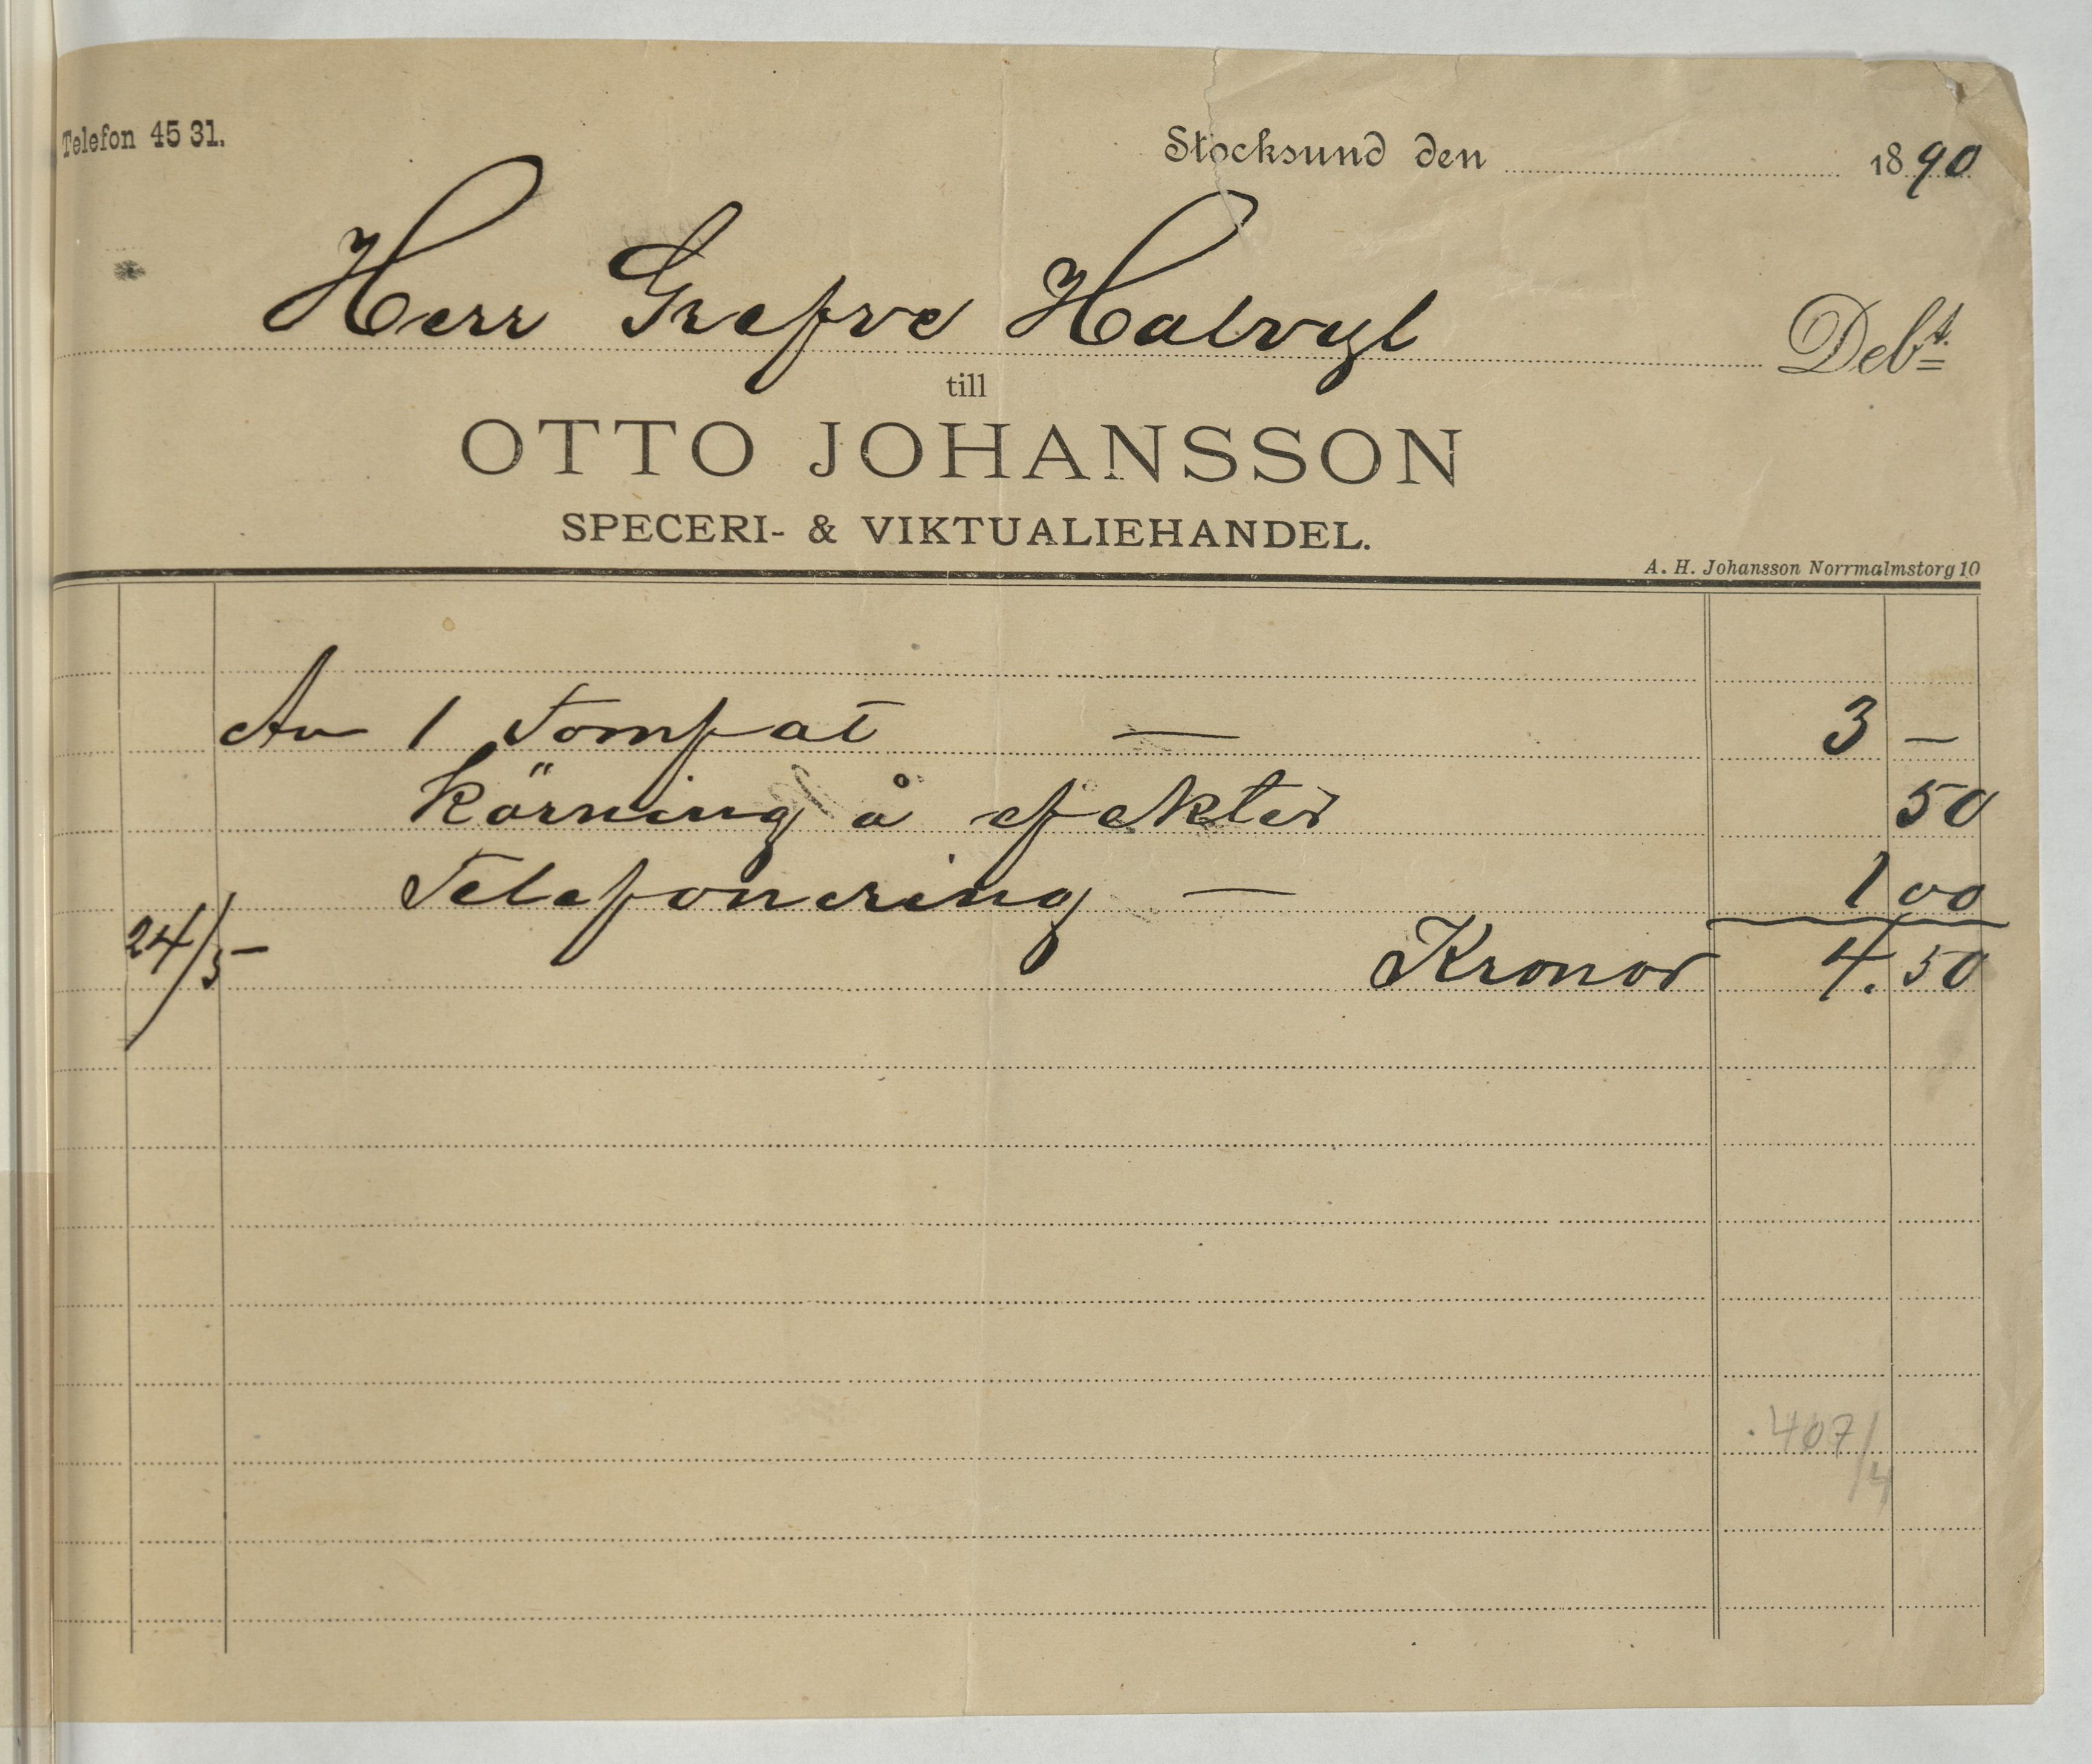 Telefon 45 31.
Stocksund den 1890
Herr Grefve Halvyl Deb.t
till
OTTO JOHANSSON
SPECERI- & VIKTUALIEHANDEL.
A. H. Johansson Norrmalmstorg 10
An 1 Tomfat — 3 —
Körning å efekter 50
Telefonering — 1 00
24/5 Kronor 4.50
407/4